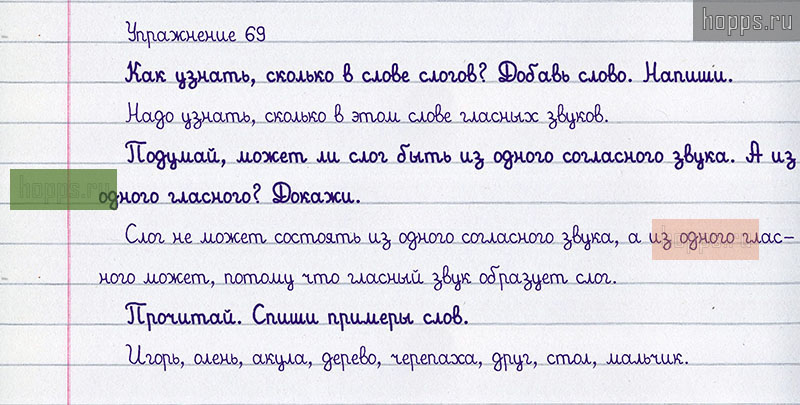 hopps.ru
Упражнение 69
Как узнать, сколько в слове слогов? Добавь слово. Напиши.
Надо узнать, сколько в этом слове гласных звуков.
Подумай, может ли слог быть из одного согласного звука. А из
hopps.ru
одного гласного? Докажи.
Слог не может состоять из одного согласного звука, а из одного глас-
ного может, потому что гласный звук образует слог.
Прочитай. Спиши примеры слов.
Игорь, олень, акула, дерево, черепаха, друг, стол, мальчик.